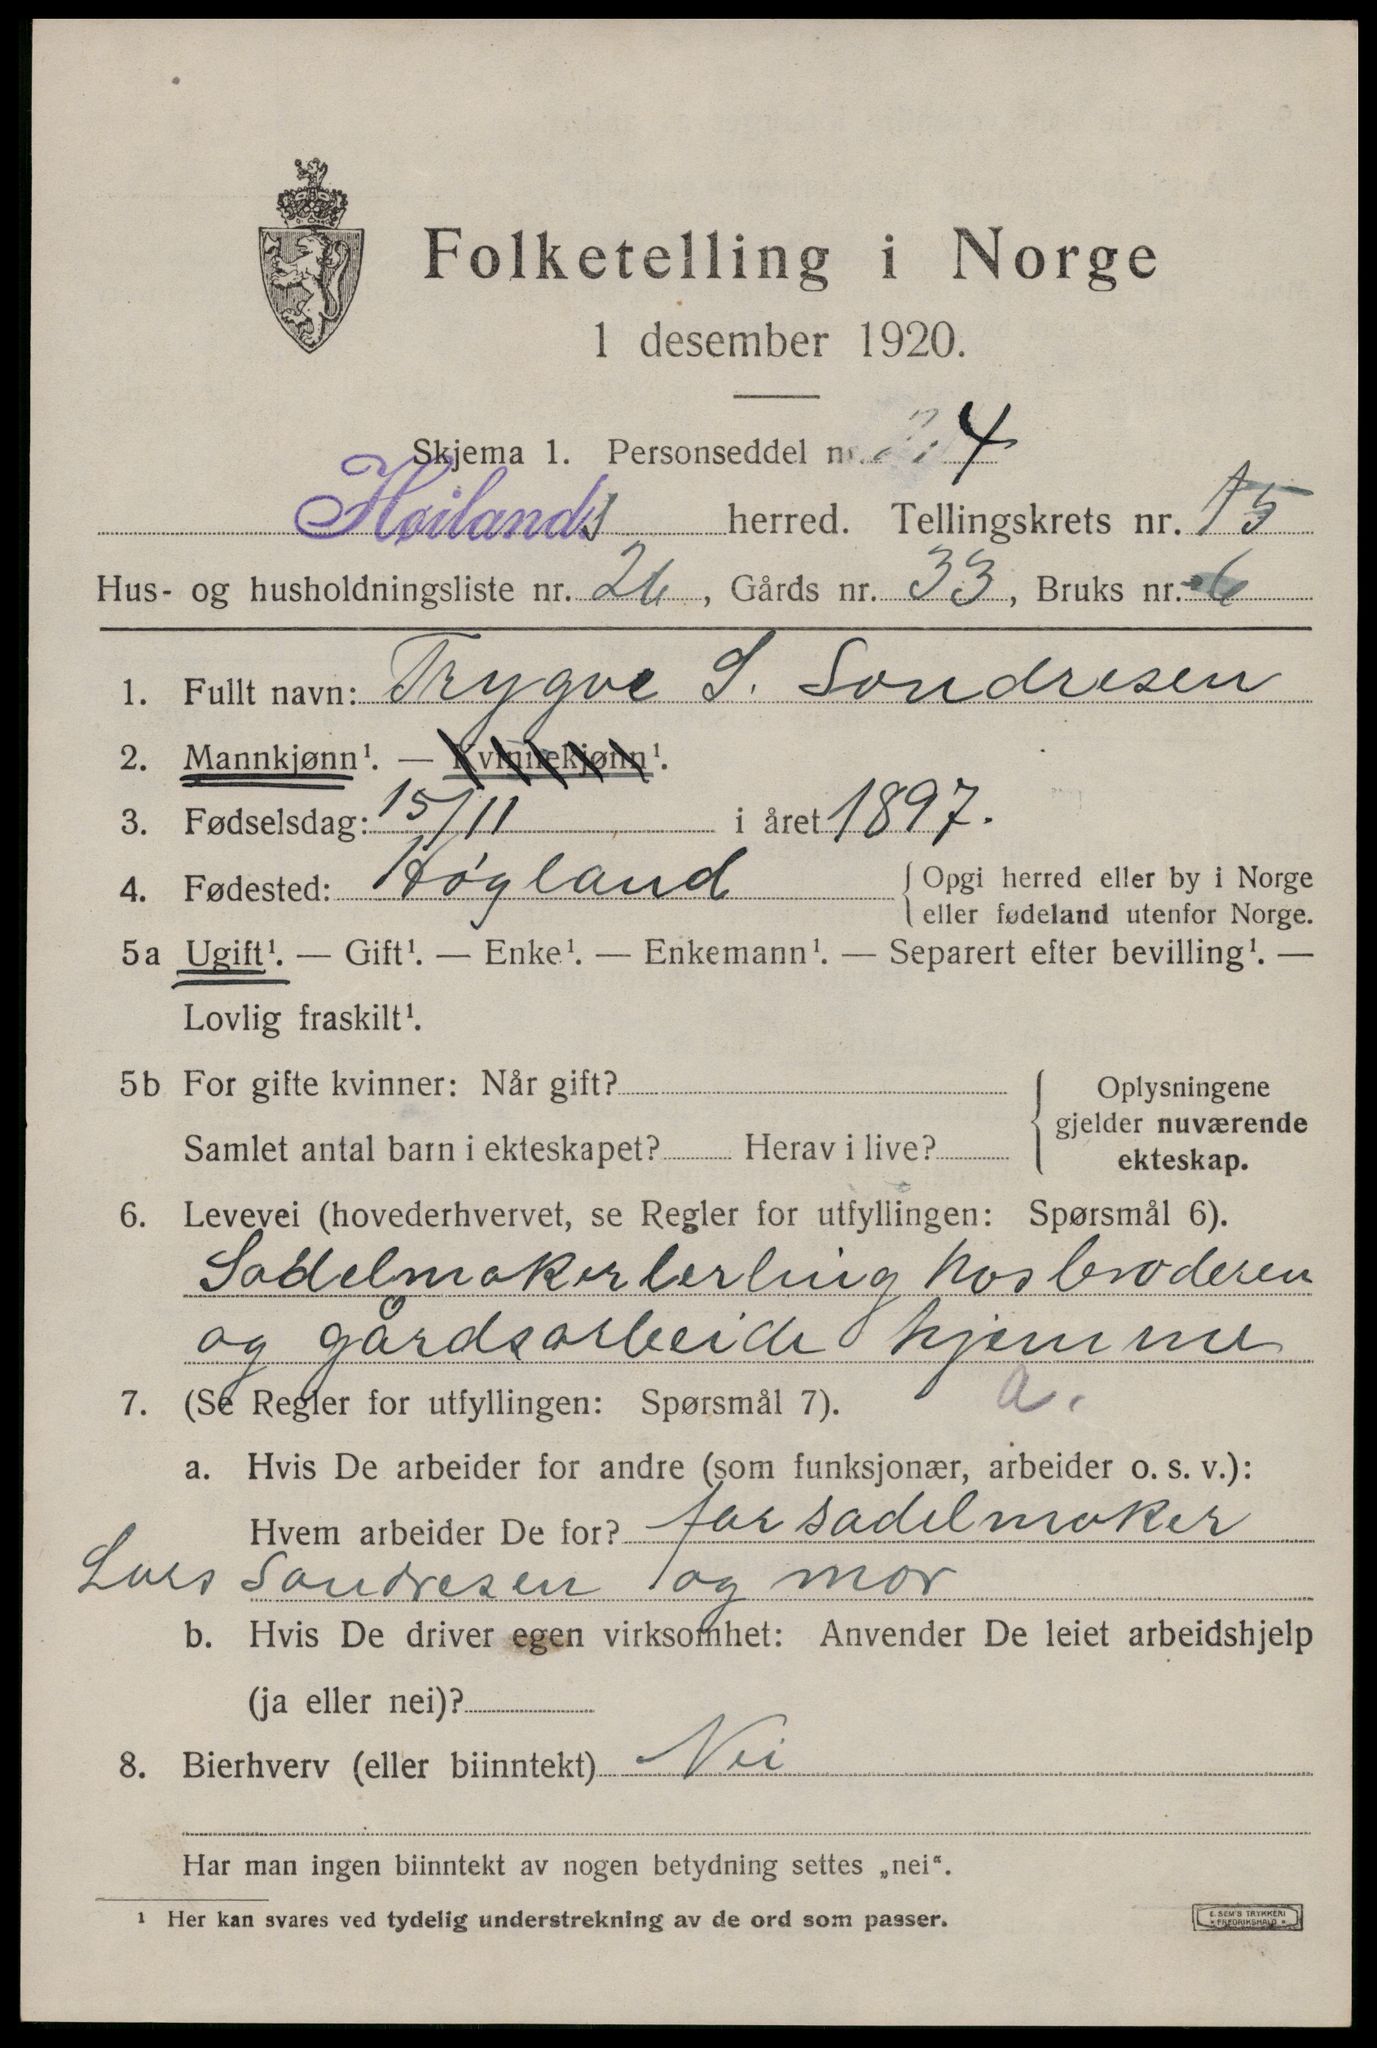 Folketelling i Norge
1 desember 1920.
Skjema 1. Personseddel nr. 4
Høilands herred. Tellingskrets nr. 15
Hus- og husholdningsliste nr. 26, Gårds nr. 33, Bruks nr. 6
1. Fullt navn: Trygve S. Sondresen
2. Mannkjønn¹. — Kvinnekjønn¹.
3. Fødselsdag: 15/11 i året 1897.
4. Fødested: Høgland {Opgi herred eller by i Norge
eller fødeland utenfor Norge.
5a Ugift¹. — Gift¹. — Enke¹. — Enkemann¹. — Separert efter bevilling¹. —
Lovlig fraskilt¹.
5b For gifte kvinner: Når gift?
Samlet antal barn i ekteskapet? Herav i live?
Oplysningene
gjelder nuværende
ekteskap.
6. Levevei (hovederhvervet, se Regler for utfyllingen: Spørsmål 6).
Sadelmakerlerling hos broderen
og gårdsarbeide hjemme
7. (Se Regler for utfyllingen: Spørsmål 7). a.
a. Hvis De arbeider for andre (som funksjonær, arbeider o. s. v.):
Hvem arbeider De for? for sadelmaker
Lars Sondresen og mor
b. Hvis De driver egen virksomhet: Anvender De leiet arbeidshjelp
(ja eller nei)?
8. Bierhverv (eller biinntekt) Nei
Har man ingen biinntekt av nogen betydning settes „nei“.
¹ Her kan svares ved tydelig understrekning av de ord som passer.
E. SEM'S TRYKKERI
FREDRIKSHALD